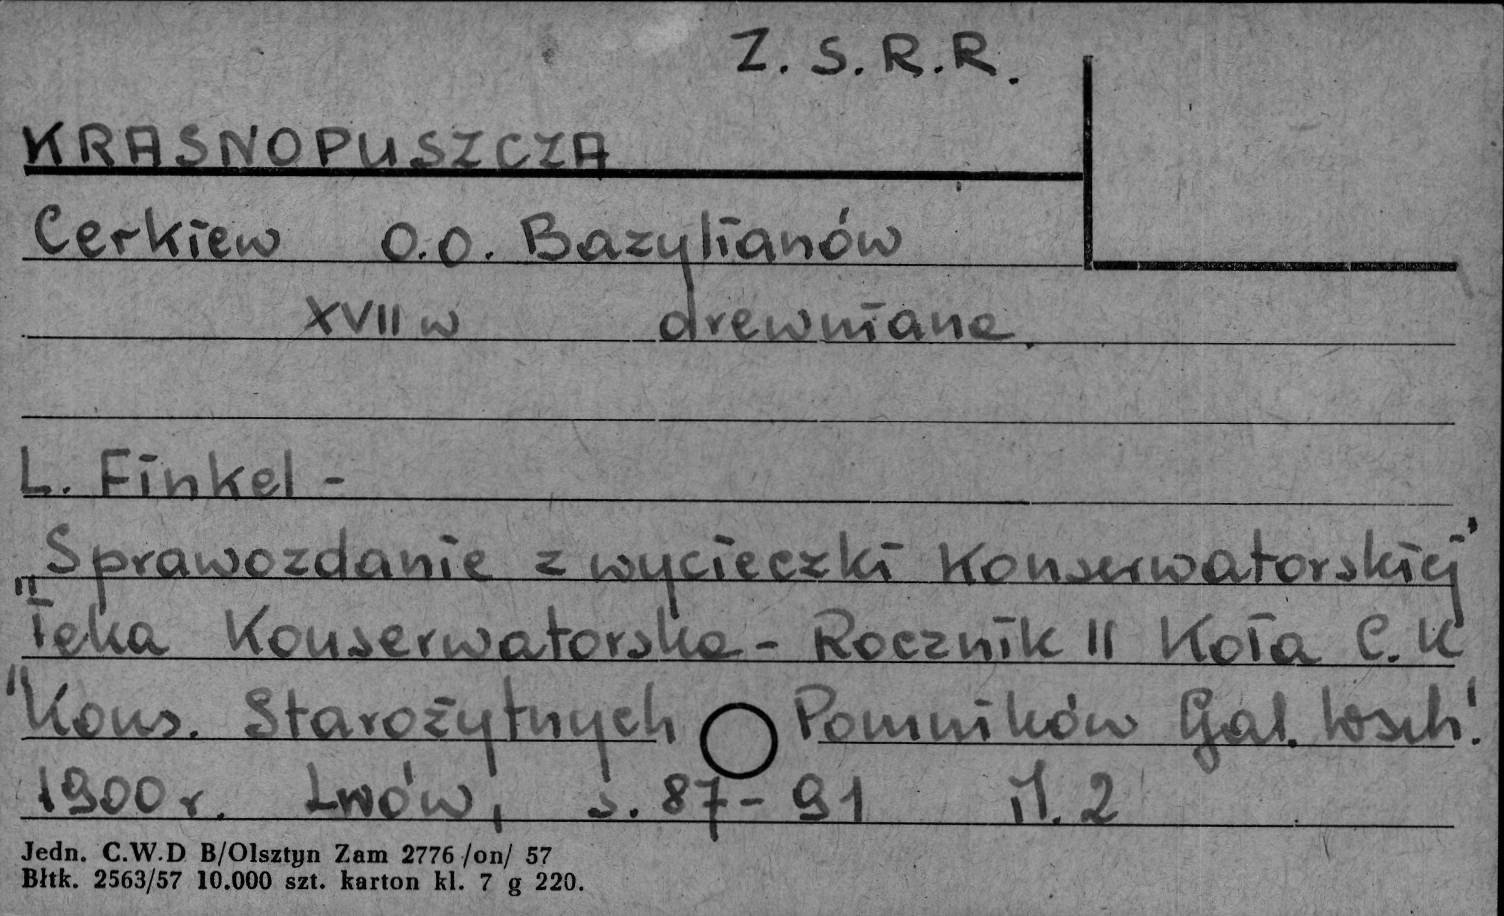 Z. S. R. R.
KRASNOPUSZCZA
Cerkiew O.O. Bazylianów
XVII w drewniane.
L. Finkel -
"Sprawozdanie z wycieczki Konserwatorskiej"
Teka Konserwatorska - Rocznik II Koła C. K
"Kons. Starożytnych Pomników Gal. Wsch."
1900 r. Lwów, s. 87 - 91 il. 2
Jedn. C.W.D B/Olsztyn Zam 2776 /on/ 57
Błtk. 2563/57 10.000 szt. karton kl. 7 g 220.